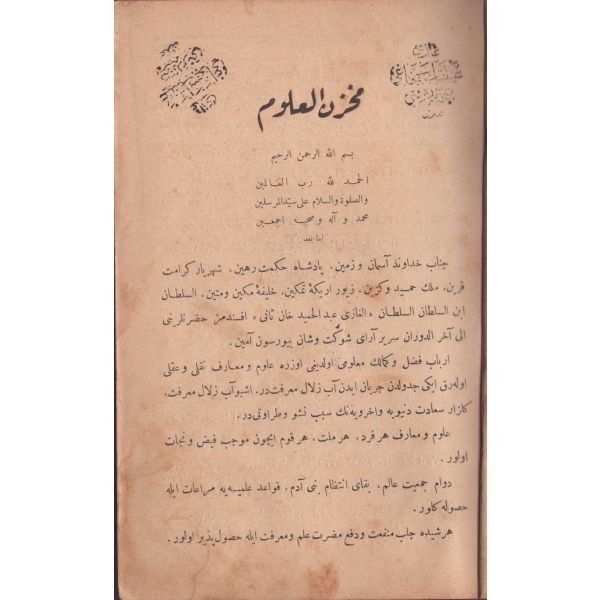 مخزن العلوم
بسم الله الرحمن الرحيم
الحمد لله رب العالمين
والصلوة والسلام على سيد المرسلين
محمد و آله و صحبه اجمعين
اما بعد:
جناب خداوند آسمان و زمين ، پادشاه حكمت رهين ، شهريار كرامت
قرين ، ملك حميد و كزين ، زيور اريكۀ تمكين ، خليفۀ مكين ومتين ، السلطان
ابن السلطان السلطان « الغازى عبد الحميد خان ثانى » افندمز حضرتلرينى
الى آخر الدوران سرير آراى شوكت وشان بيورسون آمين .
ارباب فضل و كمالك معلومى اولديغى اوزره علوم و معارف نقلى و عقلى
اوله رق ايكى جدولدن جريان ايدن آب زلال معرفت در . اشبو آب زلال معرفت ،
كلزار سعادت دنيويه و اخرويه نك سبب نشو و طراوتى در .
علوم و معارف هر فرد ، هر ملت ، هر قوم ايچون موجب فيض و نجات
اولور .
دوام جمعيت عالم ، بقاى انتظام بنى آدم ، قواعد علميه يه مراعات ايله
حصوله كلور .
هر شيده جلب منفعت و دفع مضرت علم و معرفت ايله حصول پذير اولور .